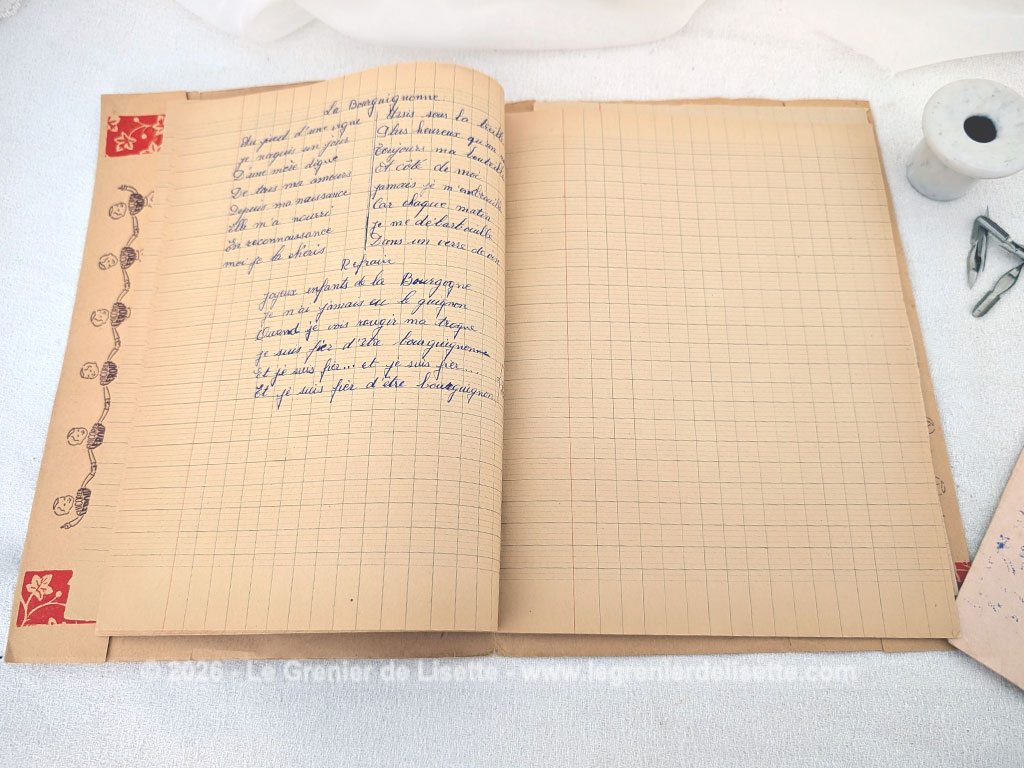 La Bourguignonne
Au pied d'une vigne
je naquis un jour
D'une mère digne
De tous ma amours
Depuis ma naissance
Elle m'a nourri
En reconnaissance
moi je la chéris
Assis sous la treille
Plus heureux qu'un
Toujours ma bouteille
A côté de moi
jamais je m'embrouille
Car chaque matin
je me débarbouille
Dans un verre de vin
Refrain
Joyeux enfants de la Bourgogne
je n'ai jamais eu le guignon
Quand je vois rougir ma trogne
je suis fier d'être bourguignonne
Et je suis fier... et je suis fier...
Et je suis fier d'être bourguignon
© 2026 - Le Grenier de Lisette - www.legrenierdelisette.com